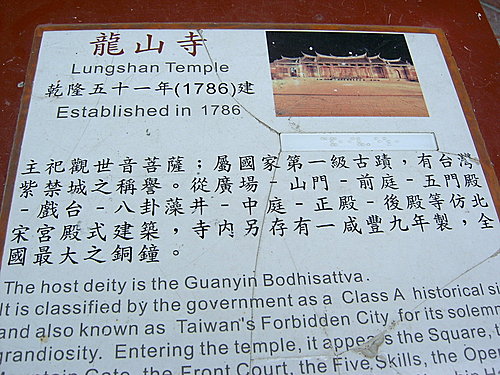 龍山寺
Lungshan Temple
乾隆五十一年(1786)建
Established in 1786
主祀觀世音菩薩；屬國家第一級古蹟，有台灣
紫禁城之稱譽。從廣場-山門-前庭-五門殿
-戲台-八卦藻井-中庭-正殿-後殿等仿北
宋宮殿式建築，寺內另存有一咸豐九年製，全
國最大之銅鐘。
The host deity is the Guanyin Bodhisattva.
It is classified by the government as a Class A historical si
and also known as Taiwan's Forbidden City, for its solemn
grandiosity. Entering the temple, it appears the Square, t
Mountain Gate, the Front Court, the Five Skills, the Oper